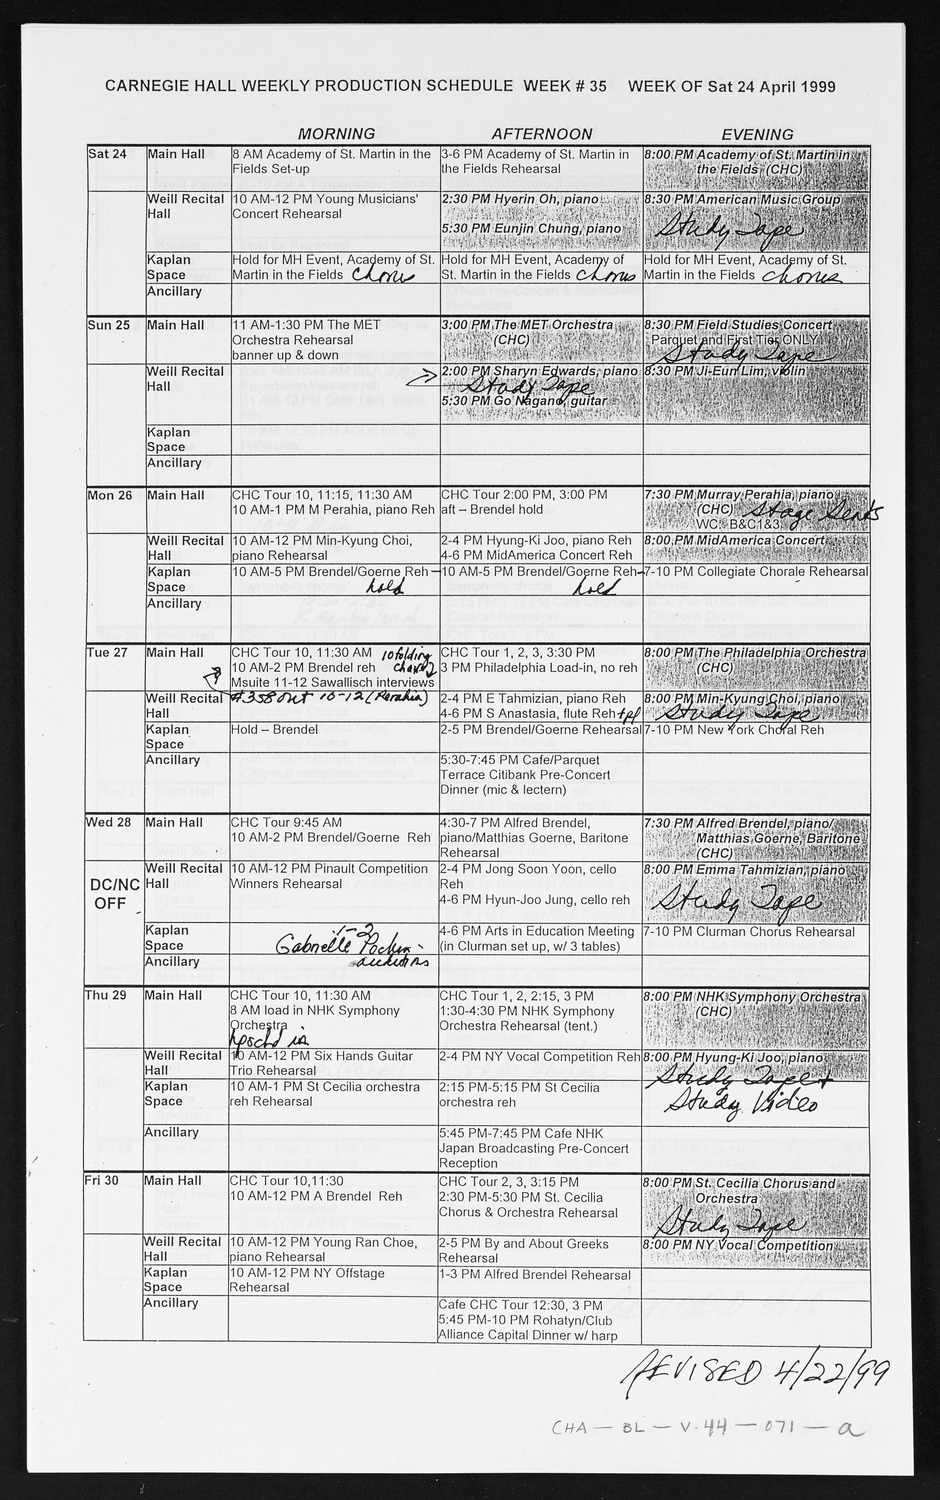 CARNEGIE HALL WEEKLY PRODUCTION SCHEDULE WEEK # 35 WEEK OF Sat 24 April 1999
MORNING AFTERNOON EVENING
Sat 24 Main Hall
8 AM Academy of St. Martin in the
Fields Set-up
3-6 PM Academy of St. Martin in
the Fields Rehearsal
8:00 PM Academy of St. Martin in
the Fields (CHC)
Weill Recital
Hall
10 AM-12 PM Young Musicians'
Concert Rehearsal
2:30 PM Hyerin Oh, piano
5:30 PM Eunjin Chung, piano
8:30 PM American Music Group
Study Tape
Kaplan
Space
Hold for MH Event, Academy of St.
Martin in the Fields chorus
Hold for MH Event, Academy of
St. Martin in the Fields chorus
Hold for MH Event, Academy of St.
Martin in the Fields chorus
Ancillary
Sun 25 Main Hall
11 AM-1:30 PM The MET
Orchestra Rehearsal
banner up & down
3:00 PM The MET Orchestra
(CHC)
8:30 PM Field Studies Concert
Parquet and First Tier ONLY
Study Tape
Weill Recital
Hall
2:00 PM Sharyn Edwards, piano
Study Tape
5:30 PM Go Nagano, guitar
8:30 PM Ji-Eun Lim, violin
Kaplan
Space
Ancillary
Mon 26 Main Hall
CHC Tour 10, 11:15, 11:30 AM
10 AM-1 PM M Perahia, piano Reh
CHC Tour 2:00 PM, 3:00 PM
aft – Brendel hold
7:30 PM Murray Perahia, piano
(CHC) Stage Seats
WC: B&C1&3
Weill Recital
Hall
10 AM-12 PM Min-Kyung Choi,
piano Rehearsal
2-4 PM Hyung-Ki Joo, piano Reh
4-6 PM MidAmerica Concert Reh
8:00 PM MidAmerica Concert
Kaplan
Space
10 AM-5 PM Brendel/Goerne Reh
hold
10 AM-5 PM Brendel/Goerne Reh
hold
7-10 PM Collegiate Chorale Rehearsal
Ancillary
Tue 27 Main Hall
CHC Tour 10, 11:30 AM 10 folding
10 AM-2 PM Brendel reh chairs
Msuite 11-12 Sawallisch interviews
#358 out 10-12 (Perahia)
CHC Tour 1, 2, 3, 3:30 PM
3 PM Philadelphia Load-in, no reh
8:00 PM The Philadelphia Orchestra
(CHC)
Weill Recital
Hall
2-4 PM E Tahmizian, piano Reh
4-6 PM S Anastasia, flute Reh +pf
8:00 PM Min-Kyung Choi, piano
Study Tape
Kaplan
Space
Hold – Brendel
2-5 PM Brendel/Goerne Rehearsal
7-10 PM New York Choral Reh
Ancillary
5:30-7:45 PM Cafe/Parquet
Terrace Citibank Pre-Concert
Dinner (mic & lectern)
Wed 28 Main Hall
CHC Tour 9:45 AM
10 AM-2 PM Brendel/Goerne Reh
4:30-7 PM Alfred Brendel,
piano/Matthias Goerne, Baritone
Rehearsal
7:30 PM Alfred Brendel, piano/
Matthias Goerne, Baritone
(CHC)
DC/NC
OFF
Weill Recital
Hall
10 AM-12 PM Pinault Competition
Winners Rehearsal
2-4 PM Jong Soon Yoon, cello
Reh
4-6 PM Hyun-Joo Jung, cello reh
8:00 PM Emma Tahmizian, piano
Study Tape
Kaplan
Space
1-2
Gabrielle
auditions
4-6 PM Arts in Education Meeting
(in Clurman set up, w/ 3 tables)
7-10 PM Clurman Chorus Rehearsal
Ancillary
Thu 29 Main Hall
CHC Tour 10, 11:30 AM
8 AM load in NHK Symphony
Orchestra
hpschd in
CHC Tour 1, 2, 2:15, 3 PM
1:30-4:30 PM NHK Symphony
Orchestra Rehearsal (tent.)
8:00 PM NHK Symphony Orchestra
(CHC)
Weill Recital
Hall
10 AM-12 PM Six Hands Guitar
Trio Rehearsal
2-4 PM NY Vocal Competition Reh
8:00 PM Hyung-Ki Joo, piano
Study Tape +
Study Video
Kaplan
Space
10 AM-1 PM St Cecilia orchestra
reh Rehearsal
2:15 PM-5:15 PM St Cecilia
orchestra reh
Ancillary
5:45 PM-7:45 PM Cafe NHK
Japan Broadcasting Pre-Concert
Reception
Fri 30 Main Hall
CHC Tour 10,11:30
10 AM-12 PM A Brendel Reh
CHC Tour 2, 3, 3:15 PM
2:30 PM-5:30 PM St. Cecilia
Chorus & Orchestra Rehearsal
8:00 PM St. Cecilia Chorus and
Orchestra
Study Tape
Weill Recital
Hall
10 AM-12 PM Young Ran Choe,
piano Rehearsal
2-5 PM By and About Greeks
Rehearsal
8:00 PM NY Vocal Competition
Kaplan
Space
10 AM-12 PM NY Offstage
Rehearsal
1-3 PM Alfred Brendel Rehearsal
Ancillary
Cafe CHC Tour 12:30, 3 PM
5:45 PM-10 PM Rohatyn/Club
Alliance Capital Dinner w/ harp
REVISED 4/22/99
CHA – BL – V.44 – 071 – a